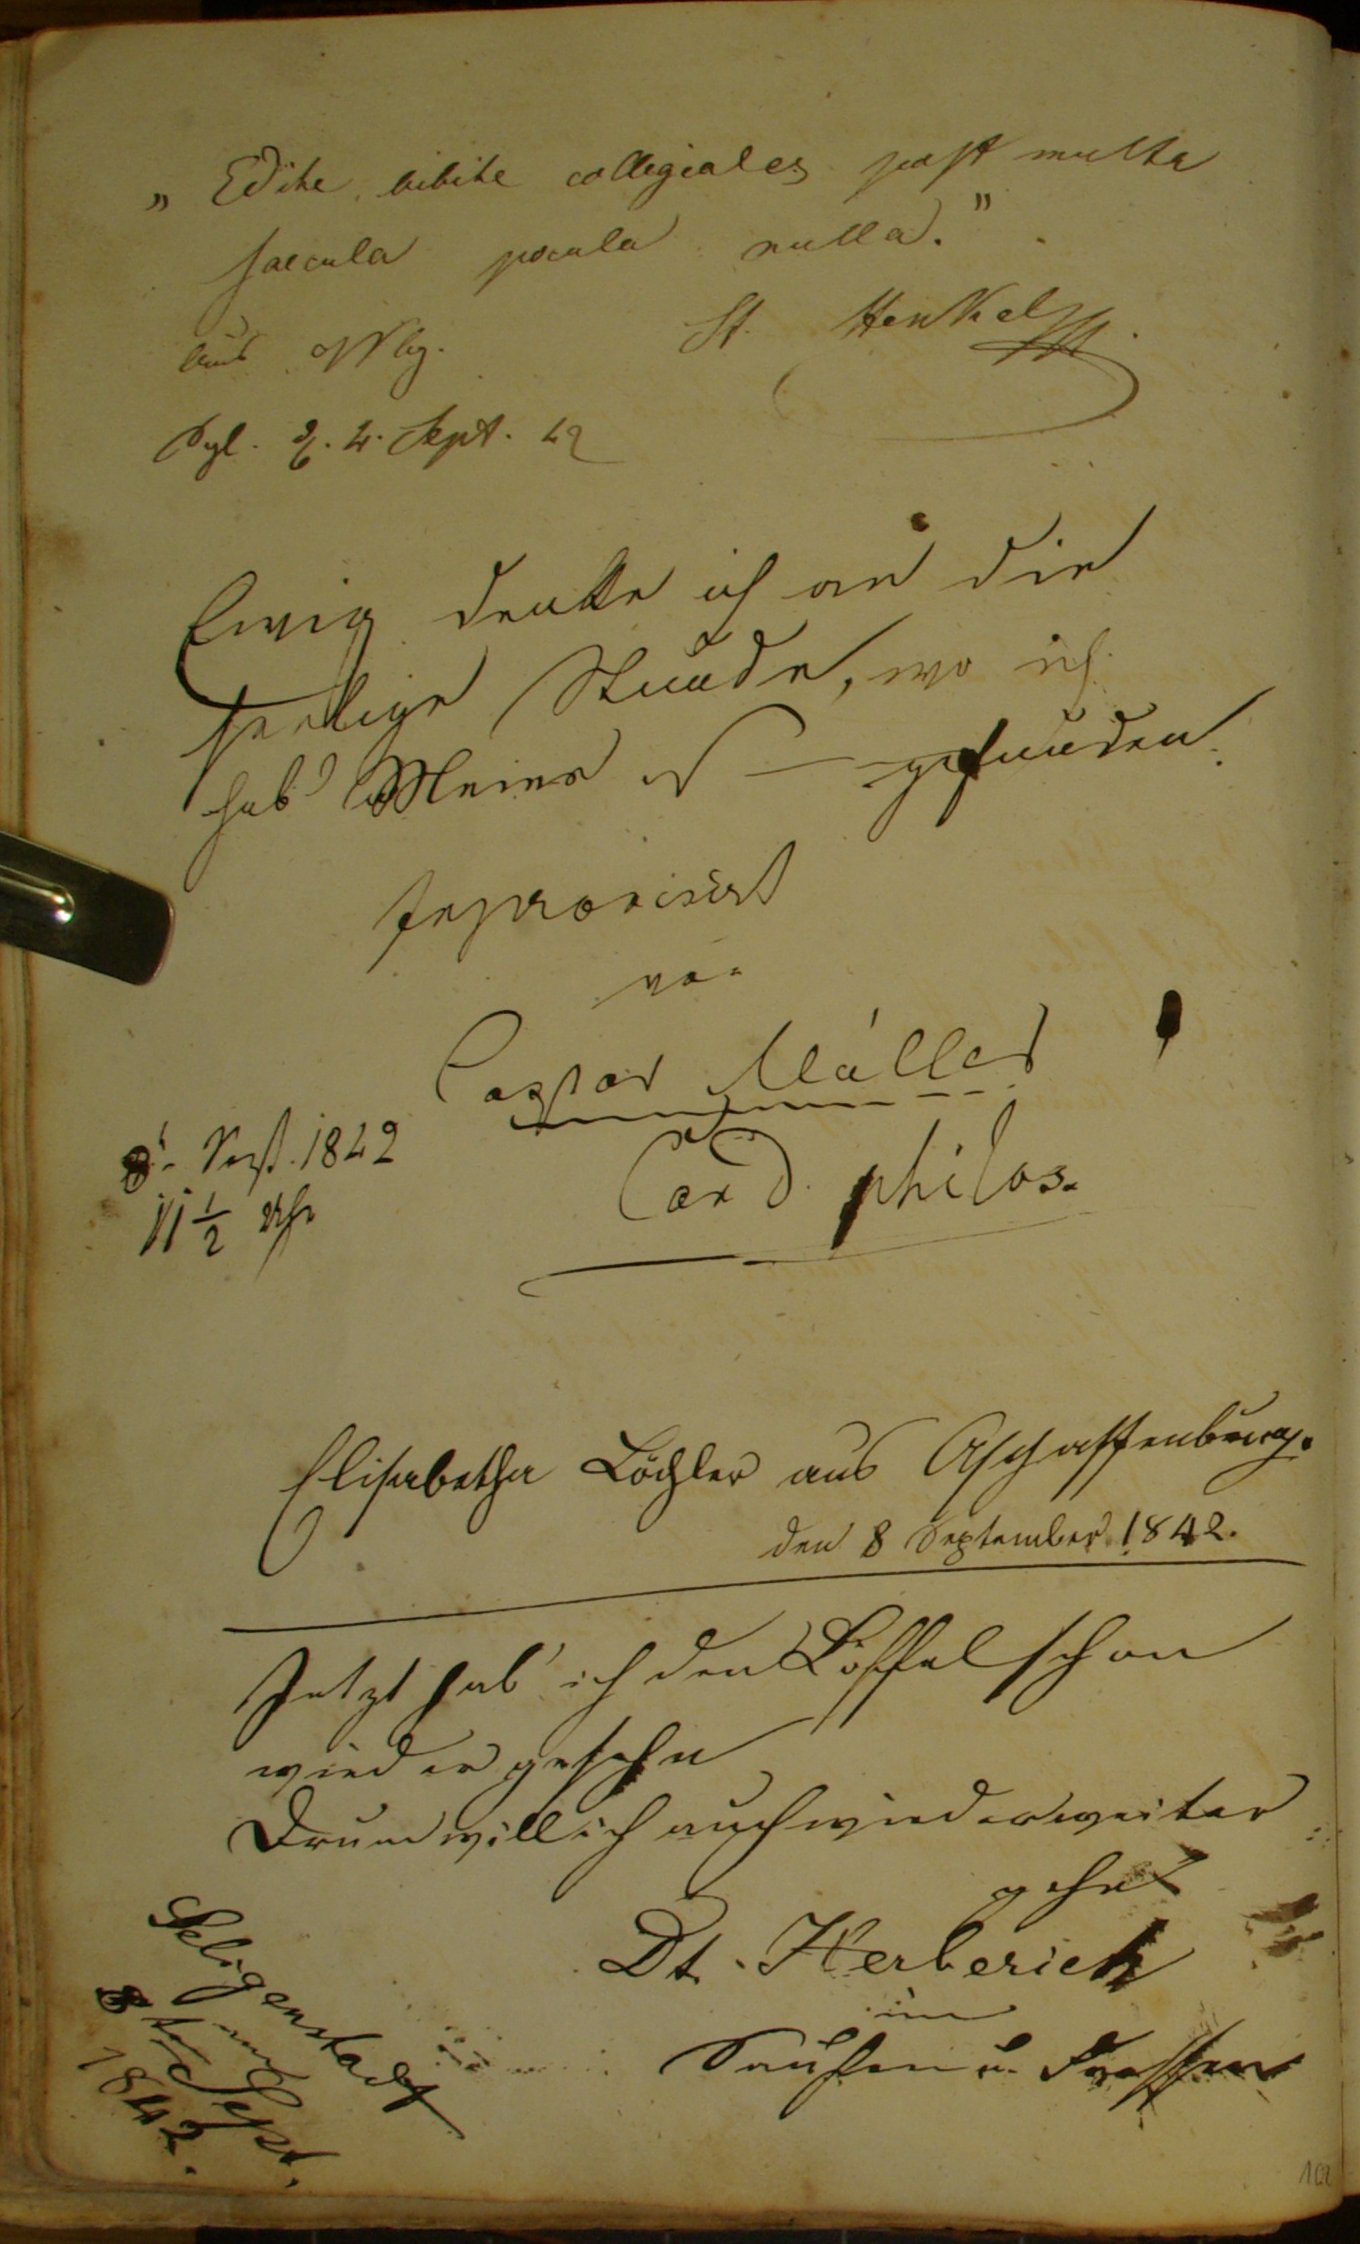 „ Edite, bibite collegiales post multa
saecula pocula nulla."
aus
St. Henkel
Sgl. d. 4. Sept. 42
Ewig denke ich an die
seelige Stunde, wo ich
hab' Meier's — gefunden.
Improvisirt
von
Caspar Müller
Cand. philos.
8t. Sept. 1842
11 1/2 Uhr
Elisabetha Löchler aus Aschaffenburg.
den 8 September 1842.
Jetzt hab' ich den Löffel schon
wieder gesehn
Drum will ich auch wieder weiter
gehn
Dt. Herberich
im
Saufen u. Fressen
Seligenstadt
am
8ten Sept.
1842.
102